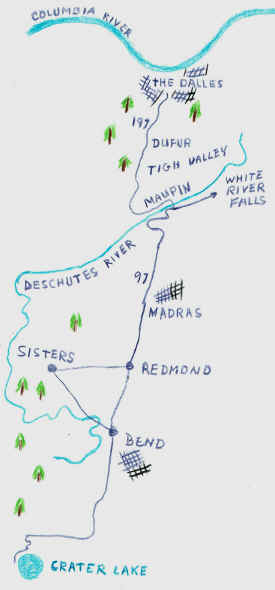 COLUMBIA RIVER
THE DALLES
197
DUFUR
TIGH VALLEY
MAUPIN
WHITE
RIVER
FALLS
DESCHUTES RIVER
97
MADRAS
SISTERS
REDMOND
BEND
CRATER LAKE